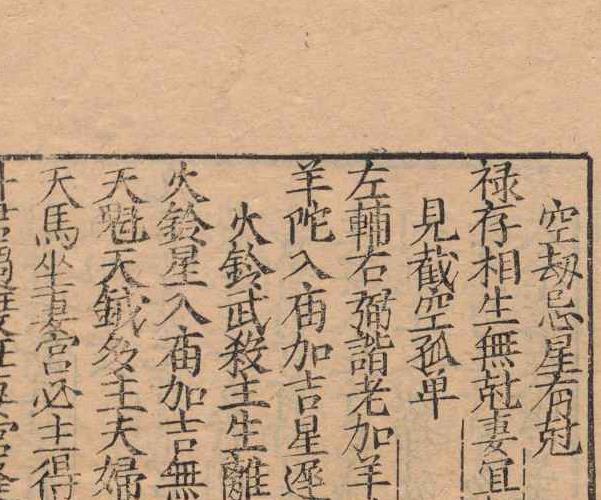 空劫忌星有尅
禄存相生無尅妻宜
見截空孤单
左輔右弼諧老加羊
羊陀入庙加吉星遲
火鈴武殺主生離
火鈴星入庙加吉無
天魁天鉞多主夫婦
天馬坐妻宮必主得